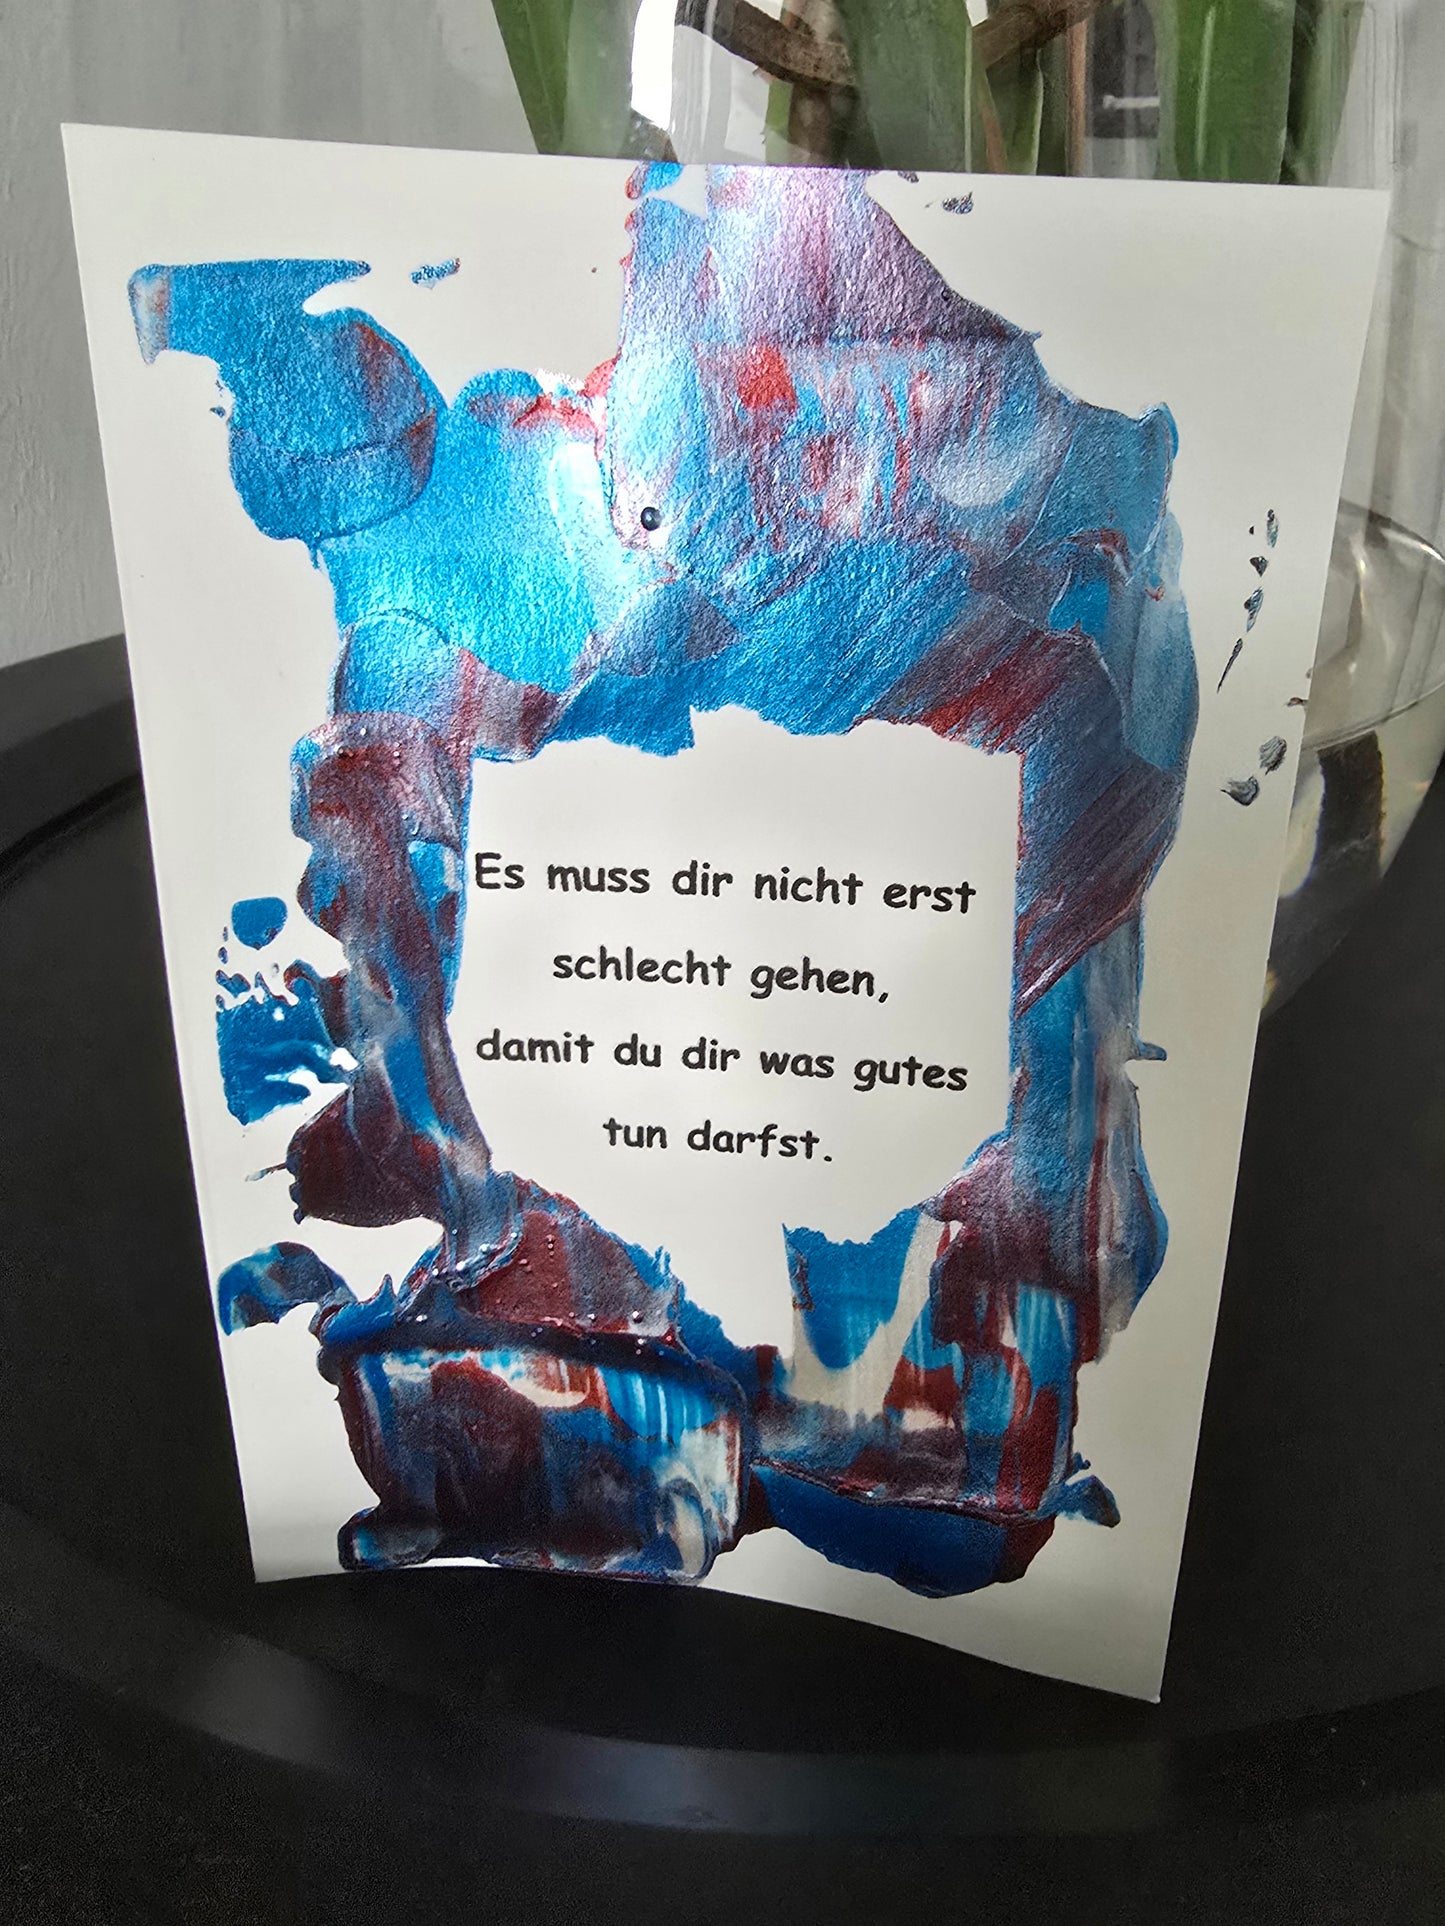 Es muss dir nicht erst
schlecht gehen,
damit du dir was gutes
tun darfst.